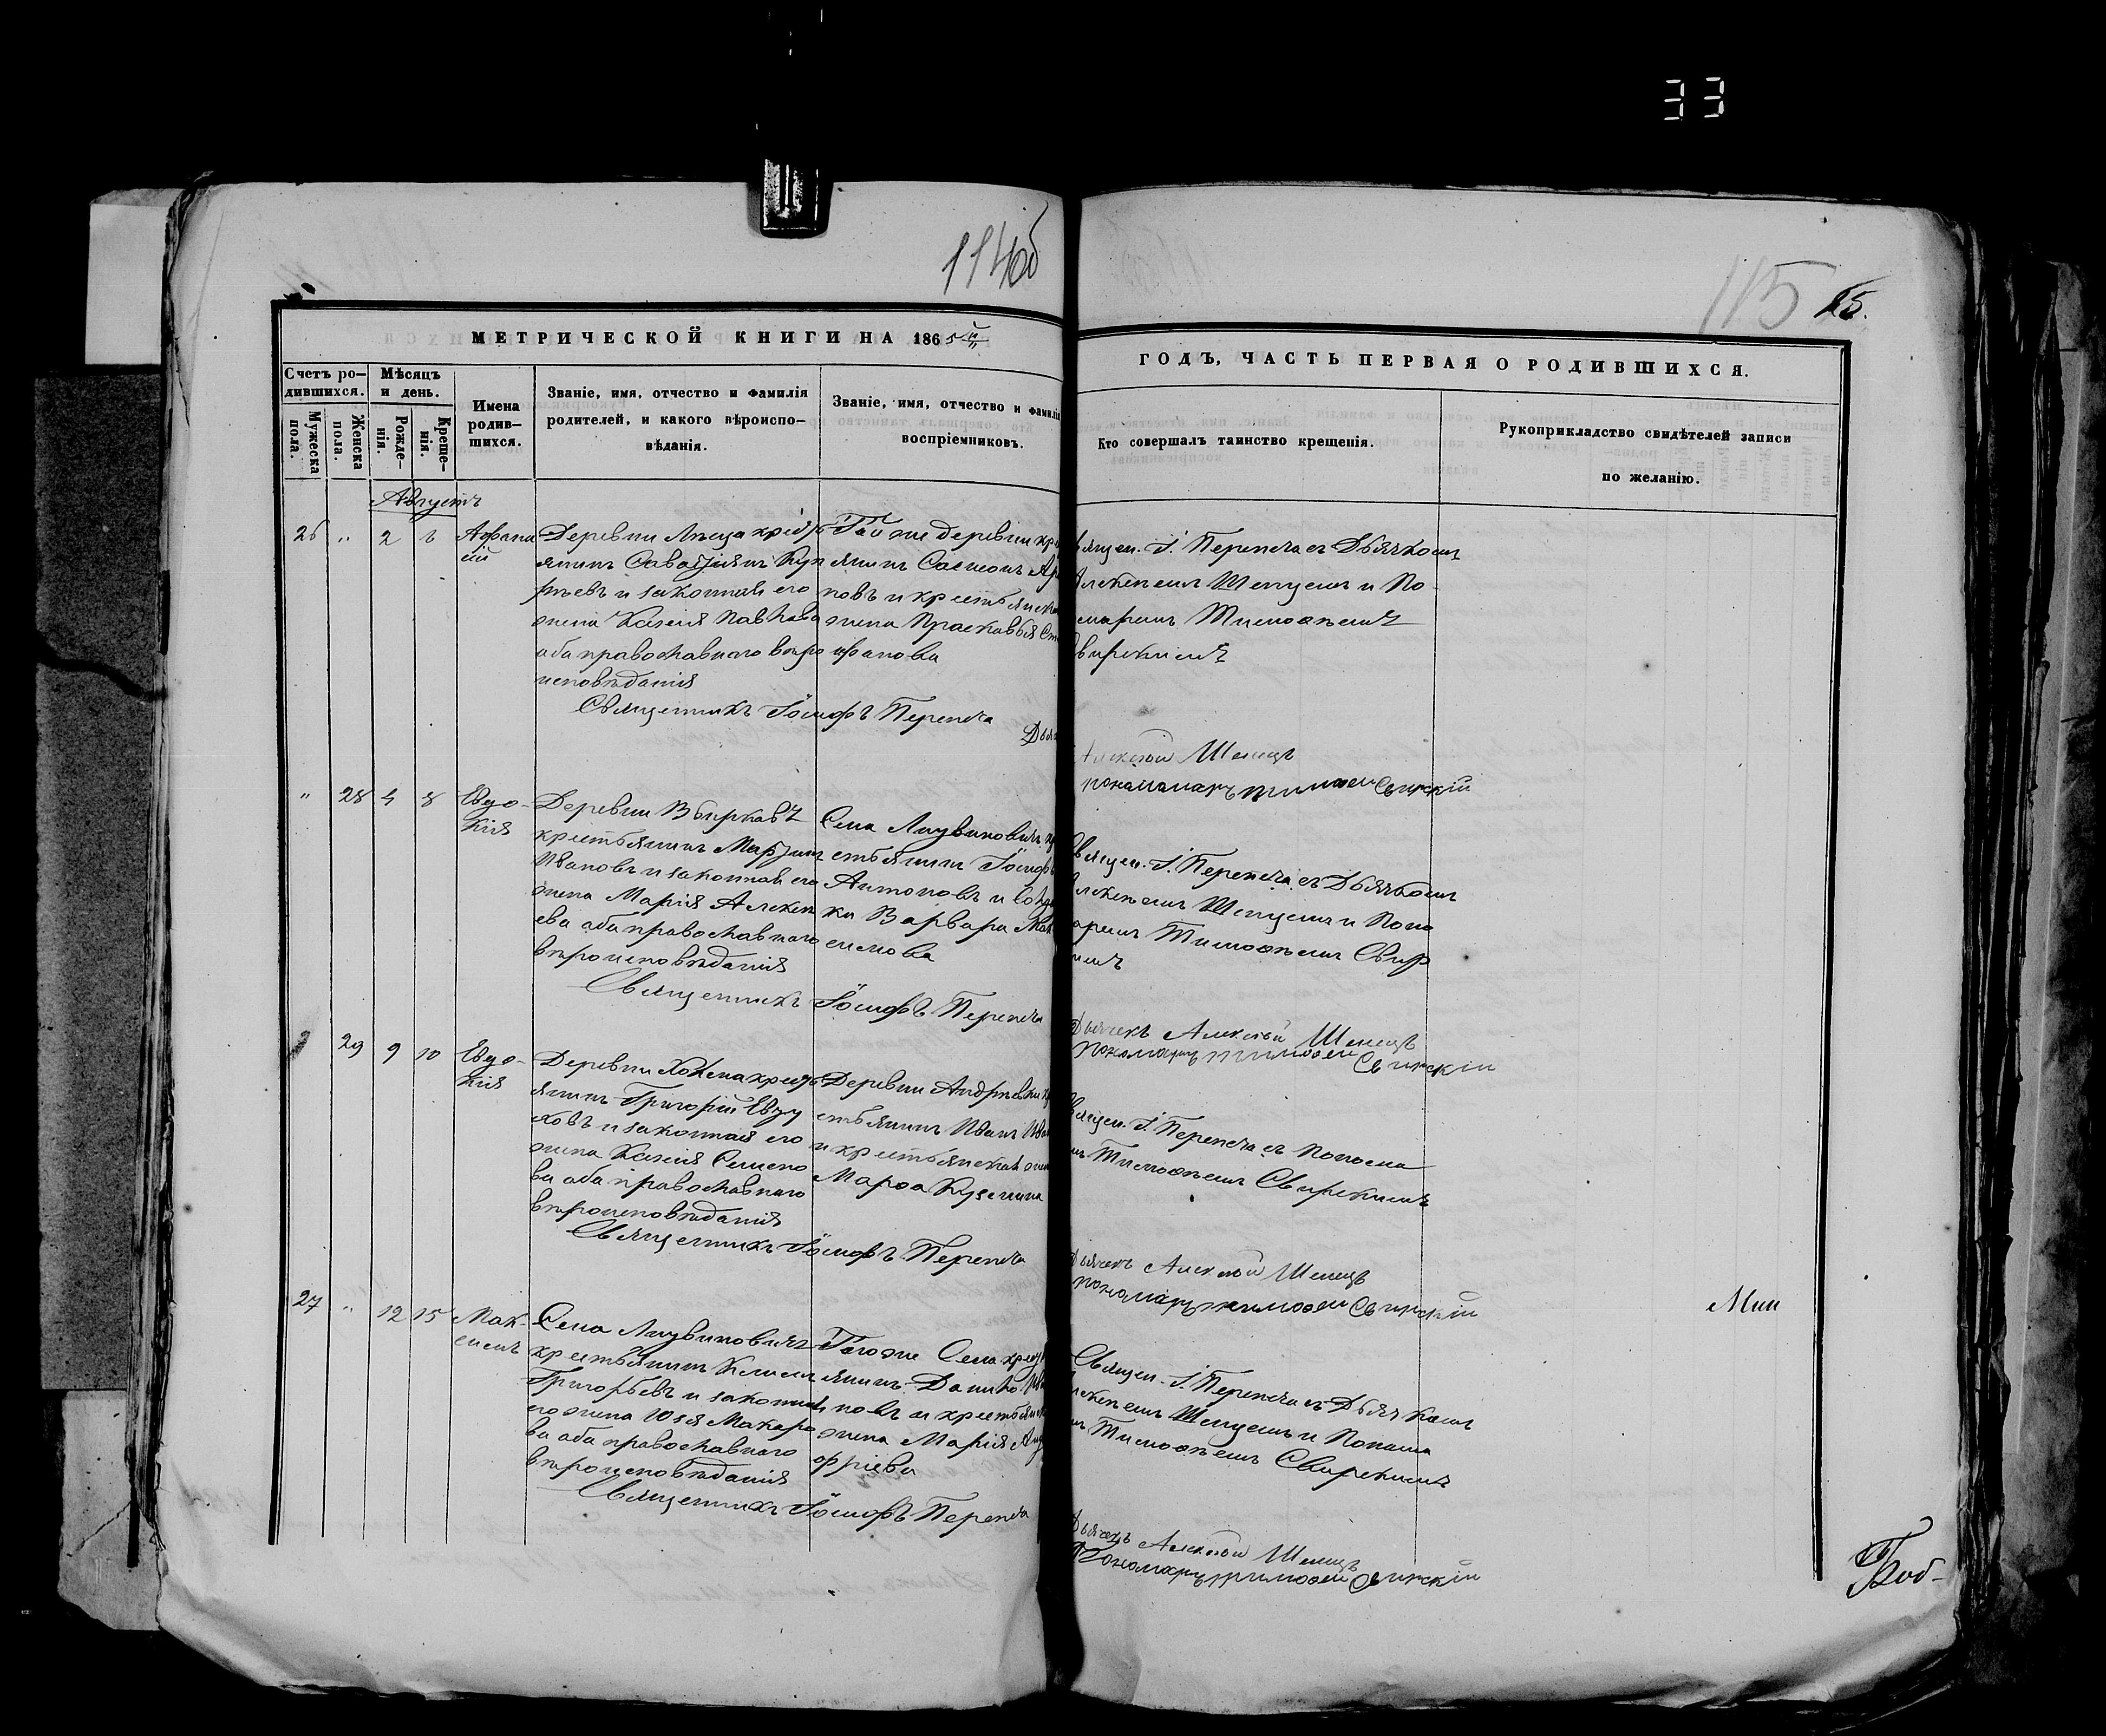 33
114об
115 15.
МЕТРИЧЕСКОЙ КНИГИ НА 1865й
ГОДЪ, ЧАСТЬ ПЕРВАЯ О РОДИВШИХСЯ.
Счетъ ро-
дившихся.
Мужеска
пола.
Женска
пола.
Мѣсяцъ
и день.
Рожде-
нія.
Креще-
нія.
Имена
родив-
шихся.
Званіе, имя, отчество и фамилія
родителей, и какого вѣроиспо-
вѣданія.
Званіе, имя, отчество и фамилія
воспріемниковъ.
Кто совершалъ таинство крещенія.
Рукоприкладство свидѣтелей записи
по желанію.
Августъ
26 " 2
Афана
ій
Деревни крестъ
янинъ
и законная его
жена Ксенія Павлова
оба православнаго вѣро
исповѣданія
Той же деревни кр
янинъ Самсонъ
повъ и крестьянска
жена Прасковья Сте
фанова
Священ. І. Перепеча съ Дьячкомъ
Алексѣемъ Шепецемъ и По
номаремъ Тимофѣемъ
Свирскимъ
Священникъ Іосифъ Перепеча
Дьяч
Алексѣй Шепецъ
пономаръ тимофей Свирскій
" 28 4 8
Евдо-
кія
Деревни
крестьянинъ Мартинъ
Ивановъ и законная его
жена Марія Алексѣ
ева оба православнаго
вѣроисповѣданія
Села Литвиновичъ кр
естьянинъ Іосифъ
Антоновъ и солдат
ка Варвара Мак
симова
Священ. І. Перепеча съ Дьячкомъ
Алексѣемъ Шепецемъ и Поно
маремъ Тимофѣемъ Свир
скимъ
Священникъ Іосифъ Перепеча
Дьячекъ Алексѣй Шепецъ
пономаръ тимофей Свирскій
29 9 10
Евдо-
кія
Деревни крестъ
янинъ Григорій
ховъ и законная его
жена Ксенія Семено
ва оба православнаго
вѣроисповѣданія
Деревни Андреевки кр
естьянинъ Иванъ Ива
и крестьянская жена
Марфа Кузьмина
Священ. І. Перепеча съ Понома
ремъ Тимофѣемъ Свирскимъ
Священникъ Іосифъ Перепеча
Дьячекъ Алексѣй Шепецъ
пономаръ тимофей Свирскій
27 " 12 15
Мак-
симъ
Села Литвиновичъ
крестьянинъ Климъ
Григорьевъ и законная
его жена Юлія Макаро
ва оба православнаго
вѣроисповѣданія
Тогоже Села крестъ
янинъ Данило Ива
новъ и крестьянск
жена Марія Ануф
фріева
Священ. І. Перепеча съ Дьячкомъ
Алексѣемъ Шепецемъ и Понома
ремъ Тимофѣемъ Свирскимъ
Священникъ Іосифъ Перепеча
Дьячекъ Алексѣй Шепецъ
Пономаръ тимофей Свирскій